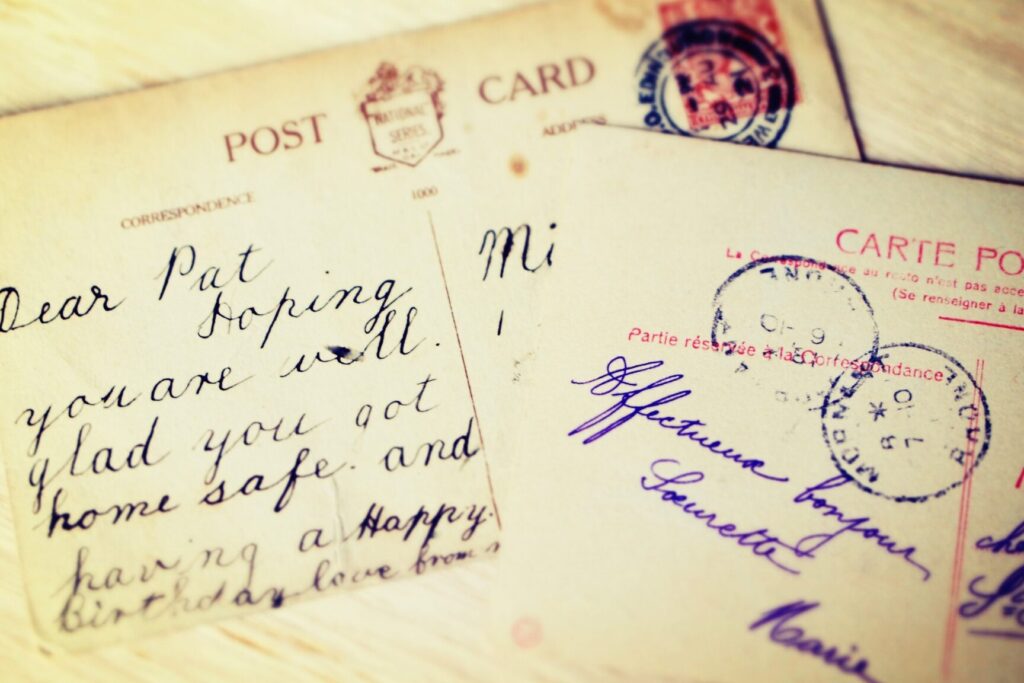 POST CARD
NATIONAL
SERIES
ADDRESS
CORRESPONDENCE
1000
Dear Pat
Hoping
you are well.
glad you got
home safe. and
having a Happy.
Birthday love from
Mi
CARTE PO
La Correspondance au recto n'est pas acce
(Se renseigner à la
Partie réservée à la Correspondance
Affectueux bonjour
Sœurette
Marie